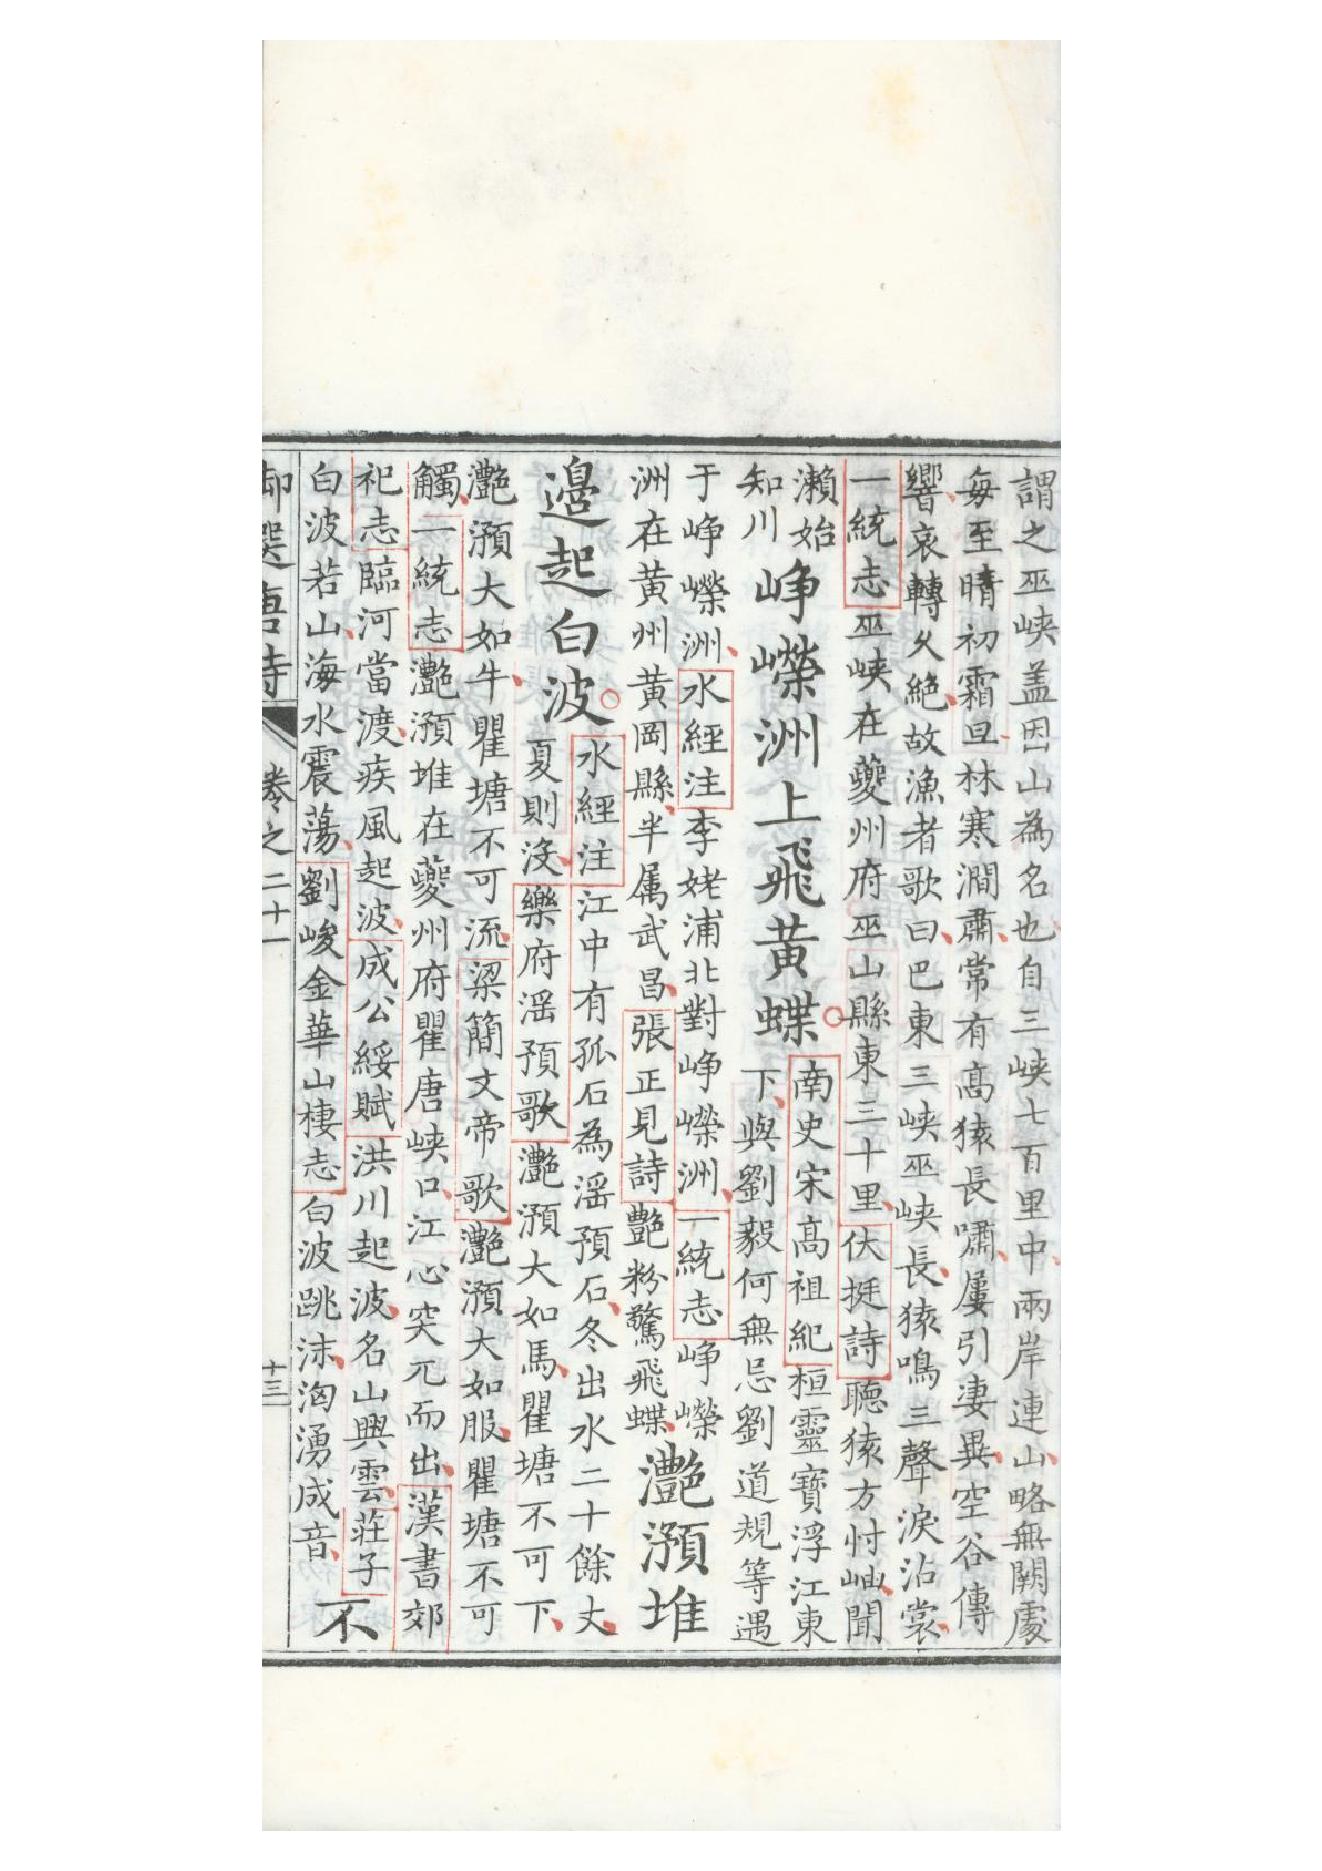 謂之巫峽盖因山為名也自三峽七百里中兩岸連山略無闕處
每至晴初霜旦林寒澗肅常有高猿長嘯屢引淒異空谷傳
響哀轉久絶故漁者歌曰巴東三峽巫峽長猿鳴三聲淚沾裳
一統志巫峽在夔州府巫山縣東三十里伏挺詩聽猿方忖岫聞
瀨始
知川
崢嶸洲上飛黃蝶
南史宋高祖紀桓靈寶浮江東
下與劉毅何無忌劉道規等遇
于崢嶸洲水經注李姥浦北對崢嶸洲一統志崢嶸
洲在黃州黃岡縣半属武昌張正見詩艷粉驚飛蝶
灔澦堆
邉起白波
水經注江中有孤石為滛預石冬出水二十餘丈
夏則没樂府滛預歌灔澦大如馬瞿塘不可下
灔澦大如牛瞿塘不可流梁簡文帝歌灔澦大如服瞿塘不可
觸一統志灔澦堆在夔州府瞿唐峽口江心突兀而出漢書郊
祀志臨河當渡疾風起波成公綏賦洪川起波名山興雲莊子
白波若山海水震蕩劉峻金華山棲志白波跳沫洶湧成音
不
御選唐詩 卷之二十一 十三